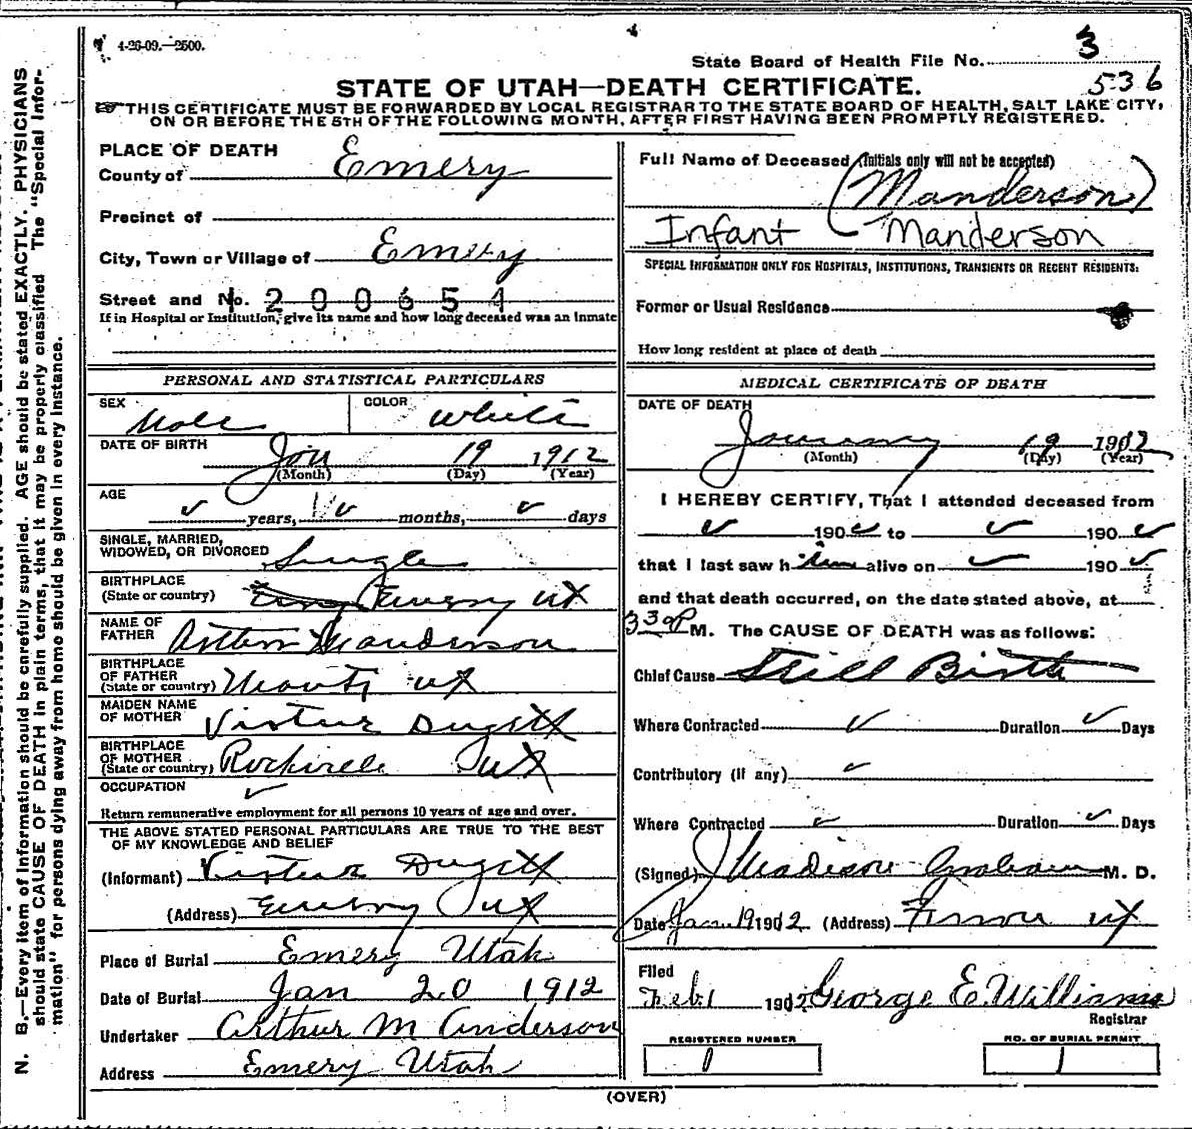 4-26-09.—2500.
State Board of Health File No. 3
536
STATE OF UTAH—DEATH CERTIFICATE.
THIS CERTIFICATE MUST BE FORWARDED BY LOCAL REGISTRAR TO THE STATE BOARD OF HEALTH, SALT LAKE CITY,
ON OR BEFORE THE 5TH OF THE FOLLOWING MONTH, AFTER FIRST HAVING BEEN PROMPTLY REGISTERED.
PLACE OF DEATH
County of Emery
Precinct of
City, Town or Village of Emery
Street and No. 200654
If in Hospital or Institution, give its name and how long deceased was an inmate
Full Name of Deceased (Initials only will not be accepted)
(Manderson)
Infant Manderson
SPECIAL INFORMATION ONLY FOR HOSPITALS, INSTITUTIONS, TRANSIENTS OR RECENT RESIDENTS:
Former or Usual Residence
How long resident at place of death
PERSONAL AND STATISTICAL PARTICULARS
SEX Male COLOR White
DATE OF BIRTH Jan 19 1912
(Month) (Day) (Year)
AGE
years, months, days
SINGLE, MARRIED,
WIDOWED, OR DIVORCED Single
BIRTHPLACE
(State or country) Emery UX
NAME OF
FATHER Manderson
BIRTHPLACE
OF FATHER
(State or country) Manti UX
MAIDEN NAME
OF MOTHER
BIRTHPLACE
OF MOTHER
(State or country) UX
OCCUPATION
Return remunerative employment for all persons 10 years of age and over.
THE ABOVE STATED PERSONAL PARTICULARS ARE TRUE TO THE BEST
OF MY KNOWLEDGE AND BELIEF
(Informant)
(Address) Emery UX
Place of Burial Emery Utah
Date of Burial Jan 20 1912
Undertaker Arthur M Anderson
Address Emery Utah
MEDICAL CERTIFICATE OF DEATH
DATE OF DEATH
January 19 1912
(Month) (Day) (Year)
I HEREBY CERTIFY, That I attended deceased from
190 to 190
that I last saw him alive on 190
and that death occurred, on the date stated above, at
330 P M. The CAUSE OF DEATH was as follows:
Chief Cause Still Birth
Where Contracted Duration Days
Contributory (if any)
Where Contracted Duration Days
(Signed) J Madison Graham M. D.
Date Jan 19 1912 (Address) Ferron UX
Filed
Feb 1 1912 George E. Williams
Registrar
REGISTERED NUMBER
1
NO. OF BURIAL PERMIT
1
(OVER)
N. B.—Every item of information should be carefully supplied. AGE should be stated EXACTLY. PHYSICIANS
should state CAUSE OF DEATH in plain terms, that it may be properly classified The "Special Infor-
mation" for persons dying away from home should be given in every instance.